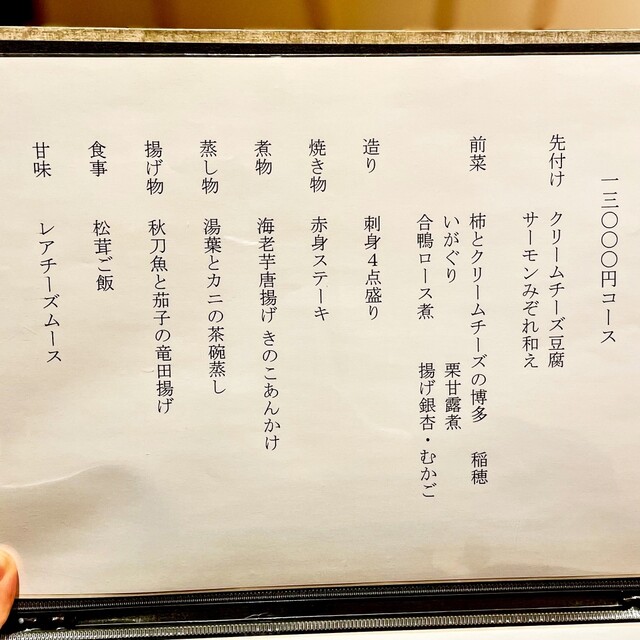 一三〇〇〇円コース
先付け クリームチーズ豆腐
サーモンみぞれ和え
前菜 柿とクリームチーズの博多 稲穂
いがぐり 栗甘露煮
合鴨ロース煮 揚げ銀杏・むかご
造り 刺身4点盛り
焼き物 赤身ステーキ
煮物 海老芋唐揚げ きのこあんかけ
蒸し物 湯葉とカニの茶碗蒸し
揚げ物 秋刀魚と茄子の竜田揚げ
食事 松茸ご飯
甘味 レアチーズムース